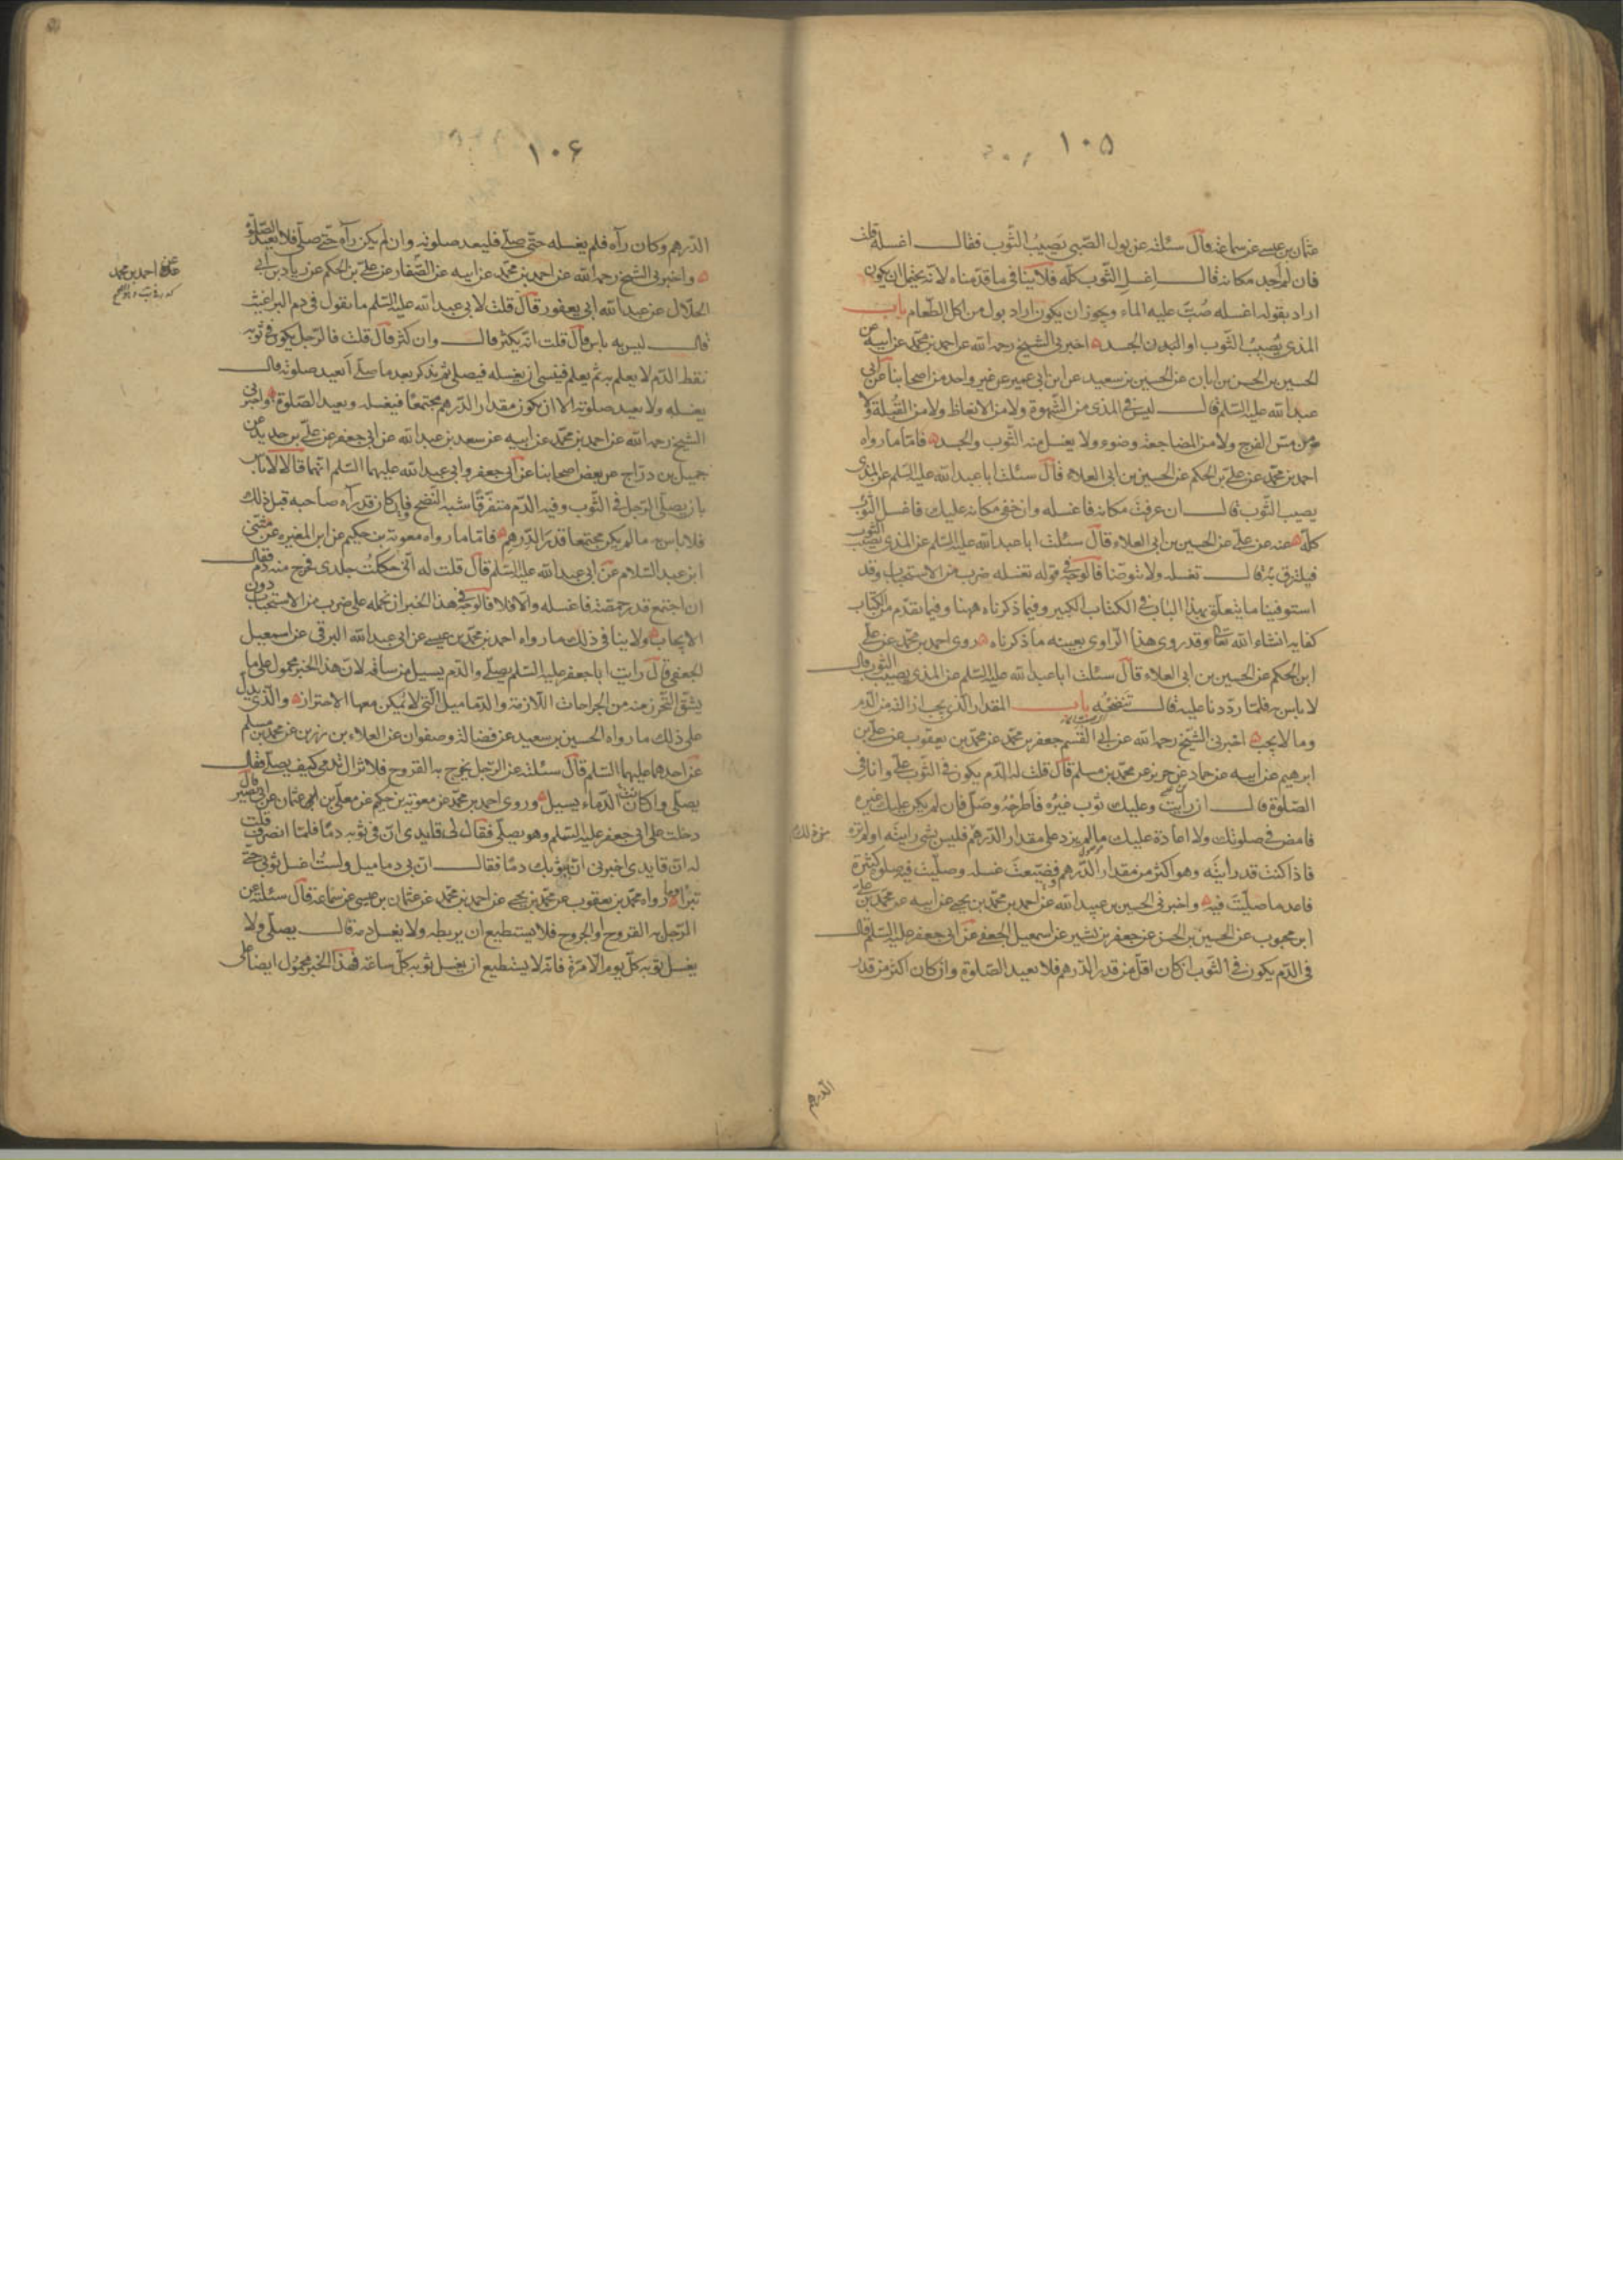 ١٠۵
عثمان بن عيسى عن سماعة قال سئلته عن بول الصّبي يصيب الثّوب فقال اغسله قلت
فان لم اجد مكانه قال اغسل الثّوب كلّه فلا ينافي ما قدّمناه لانّه يحتمل ان يكون
اراد بقوله اغسله صُبّ عليه الماء ويجوز ان يكون اراد بول من اكل الطّعام باب
المذي يُصيبُ الثّوب او البدن الجسد اخبرني الشيخ رحمه الله عن احمد بن محمّد عن ابيه عن
الحسين بن الحسن بن ابان عن الحسين بن سعيد عن ابن ابي عمير عن غير واحد من اصحابنا عن ابي
عبد الله عليه السّلم قال ليس في المذي من الشّهوة ولا من الانعاظ ولا من القُبلة ولا
من مسّ الفرج ولا من المضاجعة وضوء ولا يغسل منه الثّوب والجسد فامّا ما رواه
احمد بن محمّد عن علي بن الحكم عن الحسين بن ابي العلاء قال سئلت ابا عبد الله عليه السّلم عن المذي
يصيب الثّوب قال ان عرفت مكانه فاغسله وان خفى مكانه عليك فاغسل الثّوب
كلّه عنه عن عليّ عن الحسين بن ابي العلاء قال سئلت ابا عبد الله عليه السّلم عن المذي يصيب الثوب
فيلتزق به قال تغسله ولا تتوضّأ فالوجه في قوله تغسله ضرب من الاستحباب وقد
استوفينا ما يتعلّق بهذا الباب في الكتاب الكبير وفيما ذكرناه ههنا وفيما تقدّم من الكتاب
كفاية انشاء الله تعالى وقد روى هذا الرّاوي بعينه ما ذكرناه روى احمد بن محمّد عن علي
ابن الحكم عن الحسين بن ابي العلاء قال سئلت ابا عبد الله عليه السّلم عن المذي يصيب الثوب قال
لا باس به فلمّا ردّدنا عليه قال تنضحُه باب المقدار الّذي يجب ازالته من الدّم
وما لا يجب اخبرني الشّيخ رحمه الله عن ابي القسم جعفر بن محمّد عن محمّد بن يعقوب عن علي بن
ابرهيم عن ابيه عن حماد عن حريز عن محمّد بن مسلم قال قلت له الدّم يكون في الثّوب عليّ وانا في
الصّلوة قال ان رأيتَ وعليك ثوب غيرُه فاطرحْهُ وصلّ فان لم يكن عليك غيره
فامض في صلوتك ولا اعادة عليك ما لم يزد على مقدار الدّرهم فليس بشيء رايته او لم تره
فاذا كنت قد رأيتَه وهو اكثر من مقدار الدّرهم فضيّعتَ غسله وصلّيت فيه صلوة كثيرة
فاعد ما صلّيتَ فيه واخبرني الحسين بن عبيد الله عن احمد بن محمّد بن يحيى عن ابيه عن محمّد بن علي
ابن محبوب عن الحسين بن الحسن عن جعفر بن بشير عن اسمعيل الجعفي عن ابي جعفر عليه السّلم قال
في الدّم يكون في الثّوب ان كان اقلّ من قدر الدّرهم فلا يعيد الصّلوة وان كان اكثر من قدر
الدرهم
١٠۶
الدّرهم وكان رآه فلم يغسله حتّى صلّى فليعد صلوته وان لم يكن رآه حتّى صلّى فلا يعيد الصّلوة
واخبرني الشيخ رحمه الله عن احمد بن محمّد عن ابيه عن الصّفار عن علي بن الحكم عن زياد بن ابي
الحلّال عن عبد الله ابي يعفور قال قلت لابي عبد الله عليه السّلم ما تقول في دم البراغيث
قال ليس به باس قال قلت انّه يكثر قال وان كثر قال قلت فالرّجل يكون في ثوبه
نقط الدّم لا يعلم به ثم يعلم فينسى ان يغسله فيصلّي ثم يذكر بعد ما صلّى أيعيد صلوته قال
يغسله ولا يعيد صلوته الا ان يكون مقدار الدّرهم مجتمعًا فيغسله ويعيد الصّلوة واخبرني
الشيخ رحمه الله عن احمد بن محمّد عن ابيه عن سعد بن عبد الله عن ابي جعفر عن عليّ بن حديد عن
جميل بن درّاج عن بعض اصحابنا عن ابي جعفر وابي عبد الله عليهما السّلم انّهما قالا لا باس
بان يصلّي الرّجل في الثّوب وفيه الدّم متفرّقا شبه النّضح وان كان قد رآه صاحبه قبل ذلك
فلا باس به ما لم يكن مجتمعا قدر الدّرهم فامّا ما رواه معوية بن حكيم عن ابن المغيرة عن مثنى
ابن عبد السّلام عن ابي عبد الله عليه السّلم قال قلت له انّي حككتُ جلدي فخرج منه دم فقال
ان اجتمع قدر حمّصة فاغسله والّا فلا فالوجه في هذا الخبر ان نحمله على ضرب من الاستحباب دون
الايجاب ولا ينافي ذلك ما رواه احمد بن محمّد بن عيسى عن ابي عبد الله البرقي عن اسمعيل
الجعفي قال رايت ابا جعفر عليه السّلم يصلّي والدّم يسيل من ساقه لان هذا الخبر محمول على ما
يشقّ التّحرّز منه من الجراحات اللّازمة والدّماميل الّتي لا يُمكن معها الاحتراز والّذي يدلّ
على ذلك ما رواه الحسين بن سعيد عن فضالة وصفوان عن العلاء بن رزين عن محمّد بن مسلم
عن احدهما عليهما السّلم قال سئلته عن الرّجل يخرج به القروح فلا تزال تدمي كيف يصلّي فقال
يصلّي وان كانت الدّماء يسيل وروى احمد بن محمّد عن معوية بن حكيم عن معلّى بن ابي عثمان عن ابي بصير قال
دخلت على ابي جعفر عليه السّلم وهو يصلّي فقال لي قايدي انّ في ثوبه دمًا فلمّا انصرف قلت
له انّ قايدي اخبرني انّ بثوبك دمًا فقال انّ بي دماميل ولستُ اغسل ثوبي حتّى
تبرأ وما رواه محمّد بن يعقوب عن محمّد بن يحيى عن احمد بن محمّد عن عثمان بن عيسى عن سماعة قال سئلته عن
الرّجل به القروح او الجروح فلا يستطيع ان يربطه ولا يغسل دمه قال يصلّي ولا
يغسل ثوبه كلّ يوم الّا مرّة فانّه لا يستطيع ان يغسل ثوبه كلّ ساعة فهذا الخبر محمُول ايضا على
عن احمد بن محمد